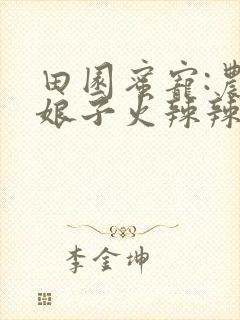 田园蜜宠:农
娘子火辣辣
李金坤